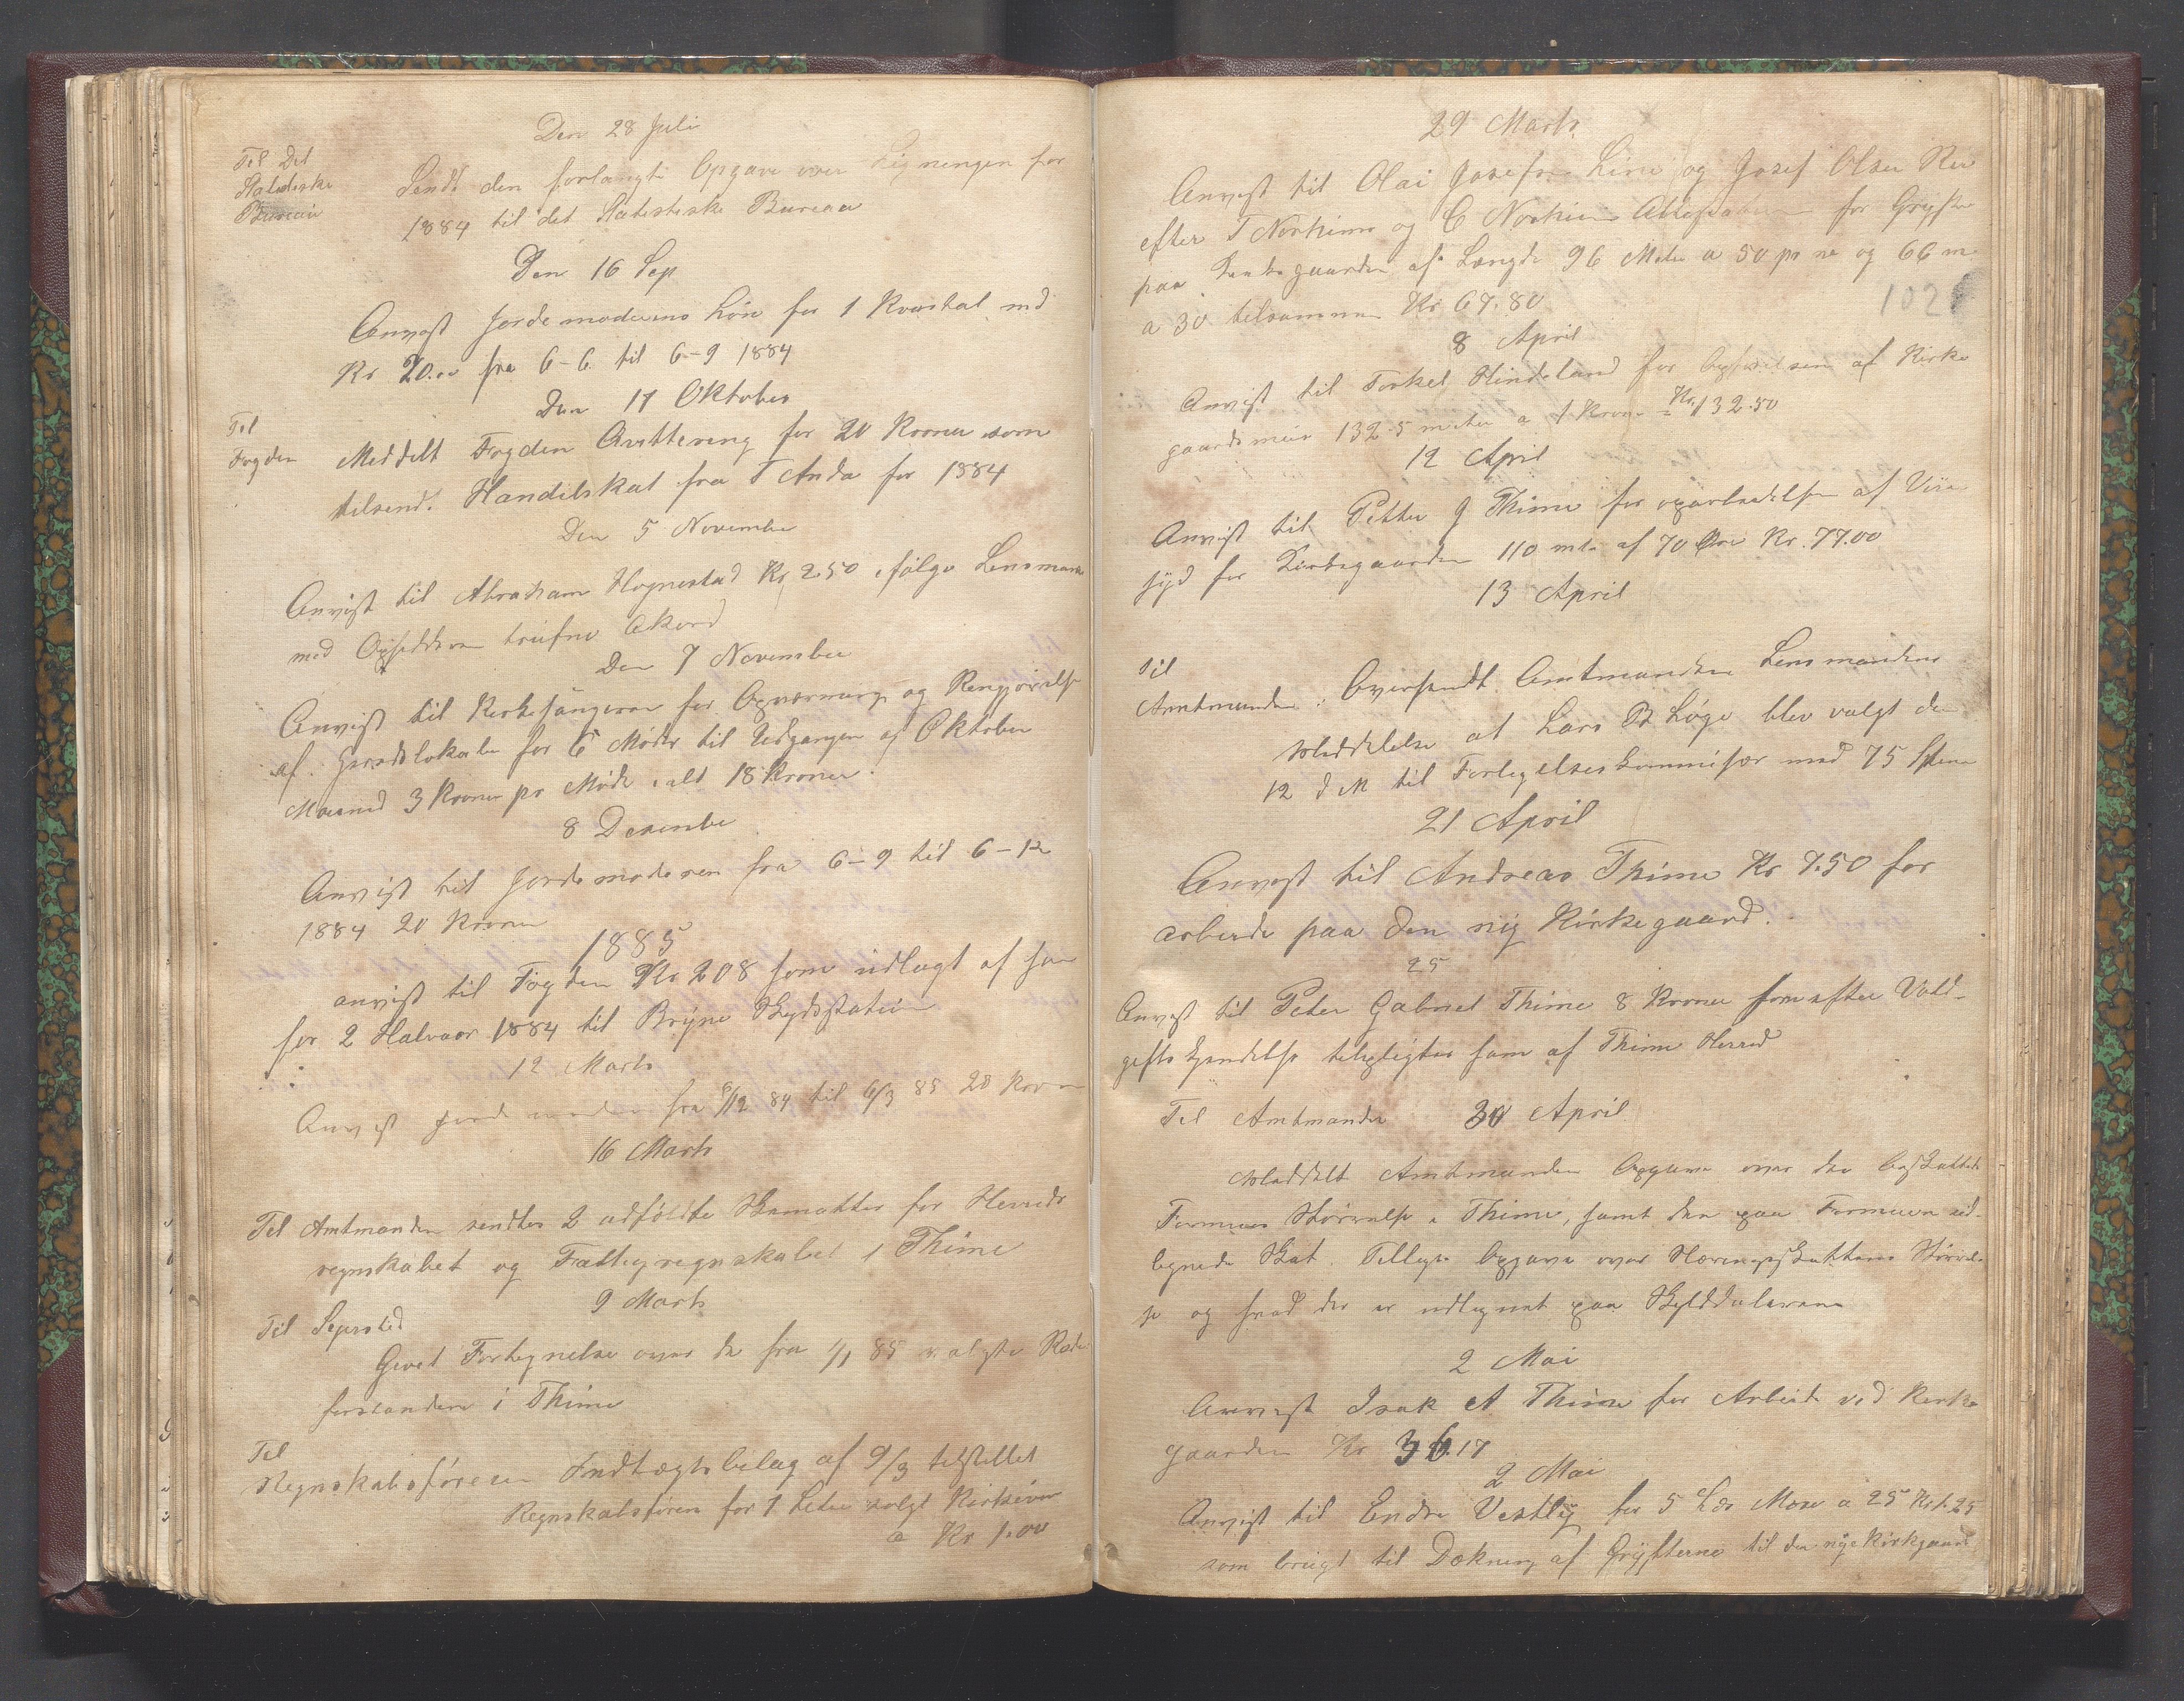 Den 28 Juli
Til Det
Statistiske
Bureau
Sendt den forlangte Opgave over Ligningen for
1884 til det Statistiske Bureau
Den 16 Sep
Anvist Jordemoderens Løn for 1 Kvartal med
Kr 20.00 fra 6-6 til 6-9 1884
Den 17 Oktober
Til
Fogden
Meddelt Fogden Qvittering for 20 Kroner som
tilsend. Handelskat fra T Anda for 1884
Den 5 November
Anvist til Abraham Hognestad Kr 2.50 ifølge Lensmand
med Opsidderen trufne Akord
Den 7 November
Anvist til Kirkesangeren for Opvarmning og Rengjørelse
af Herredslokalet for 6 Møder til Udgangen af Oktober
Maaned 3 Kroner pr Møde ialt 18 Kroner.
8 Desember
Anvist til Jordemoderen fra 6-9 til 6-12
1884 20 Kroner
1885
anvist til Fogden Kr 208 som udlagt af ham
for 2 Halvaar 1884 til Bryne Skydsstation
12 Marts
Anvist Jordemoderen fra 6/12 84 til 6/3 85 20 Kroner
16 Marts
Til Amtmanden sendtes 2 udfyldte Skematter for Herreds
regnskabet og Fattigregnskabet i Thime
9 Marts
Til
Givet Fortegnelse over de fra 1/1 85 valgte Rode
forstandere i Thime
Til
Regnskabsføreren Indtægtsbilag af 9/3 tilstillet
Regnskabsføren for 1 solgt
a Kr 1.00
29 Marts
Anvist til Olai Josefsen Line og Josef Olsen Ree
efter T Norheims og C Norheims Attestation for Grøfter
paa Kirkegaarden af Længde 96 Meter a 50 pr m og 66 m
a 30 tilsammen Kr 67.80
102
8 April
Anvist til Torkel Hindeland for Opførelsen af Kirke
gaardsmur 132.5 meter a 1 Krone = Kr 132.50
12 April
Anvist til Petter G Thime for oparbeidelsen af Vei
syd for Kirkegaarden 110 mtr af 70 Øre Kr. 77.00
13 April
Til
Amtmanden. Oversendt Amtmanden Lensmandens
Meddelelse at Lars B Løge blev valgt den
12 d M til Forligelseskommisær med 75 Stem
21 April
Anvist til Andreas Thime Kr 7.50 for
arbeide paa den ny Kirkegaard.
25
Anvist til Peter Gabriel Thime 8 Kroner som efter Vold-
gifts Kjendelse tilpligtes ham af Thime Herred
Til Amtmanden 30 April
Meddelt Amtmanden Opgave over den beskattede
Formues Størrelse i Thime, samt den paa Formuen ud-
lignede Skat. Tillige Opgave over Næringsskattens Størrel-
se og hvad der er udlignet paa Skylddaleren
2 Mai
Anvist Isak A Thime for Arbeide ved Kirke
gaarden Kr 36.17
2 Mai
Anvist til Endre Vestly for 5 Læs Mose a 25 Kr 1.25
som brugt til Dækning af Grøfterne til den nye Kirkegaard